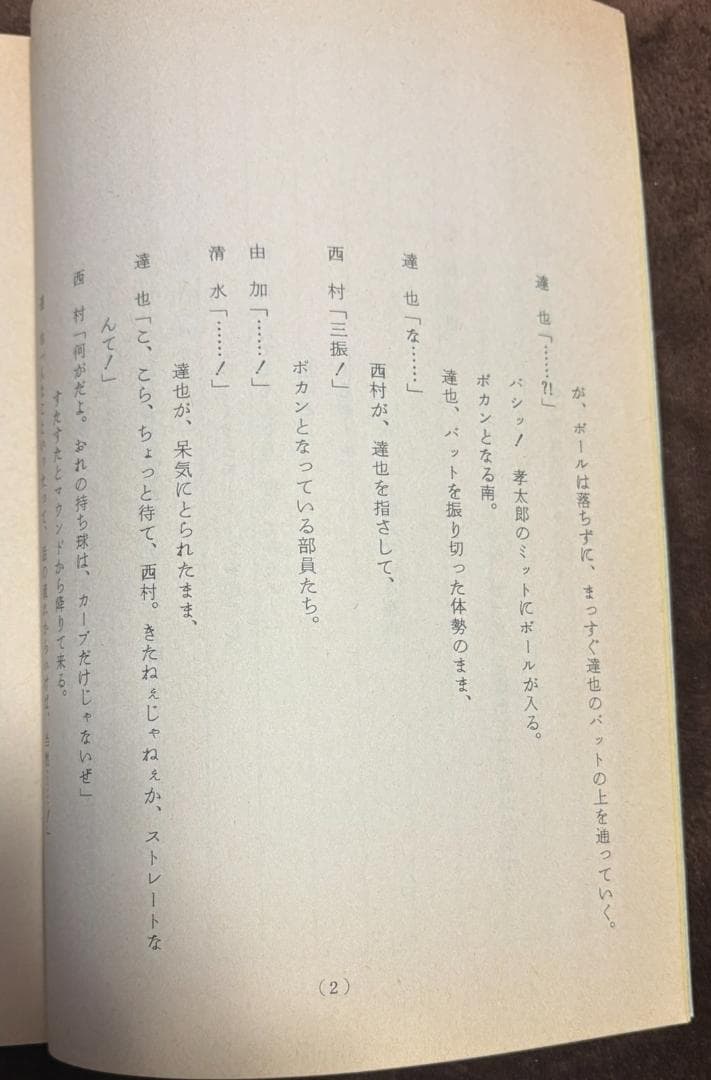 が、ボールは落ちずに、まっすぐ達也のバットの上を通っていく。
達 也「……?!」
バシッ! 孝太郎のミットにボールが入る。
ポカンとなる南。
達也、バットを振り切った体勢のまま、
達 也「な……」
西村が、達也を指さして、
西 村「三振!」
ポカンとなっている部員たち。
由 加「……!」
清 水「……!」
達也が、呆気にとられたまま、
達 也「こ、こら、ちょっと待て、西村。きたねぇじゃねぇか、ストレートな
んて!」
西 村「何がだよ。おれの持ち球は、カーブだけじゃないぜ」
すたすたとマウンドから降りて来る。
(2)